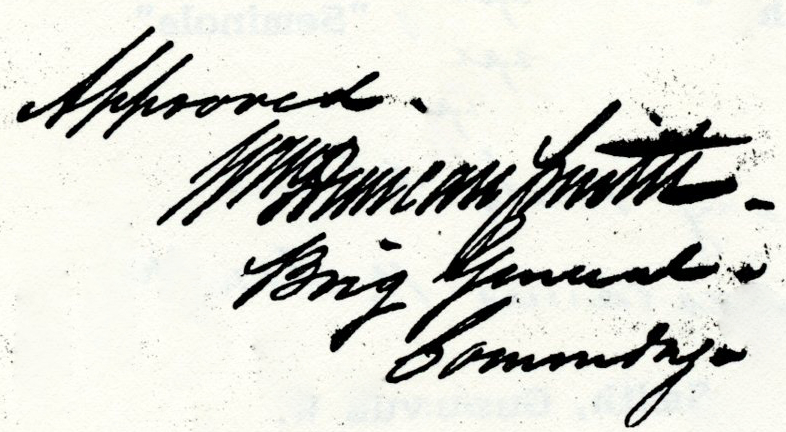 Approved.
Wm Duncan Smith.
Brig General.
Commndg.